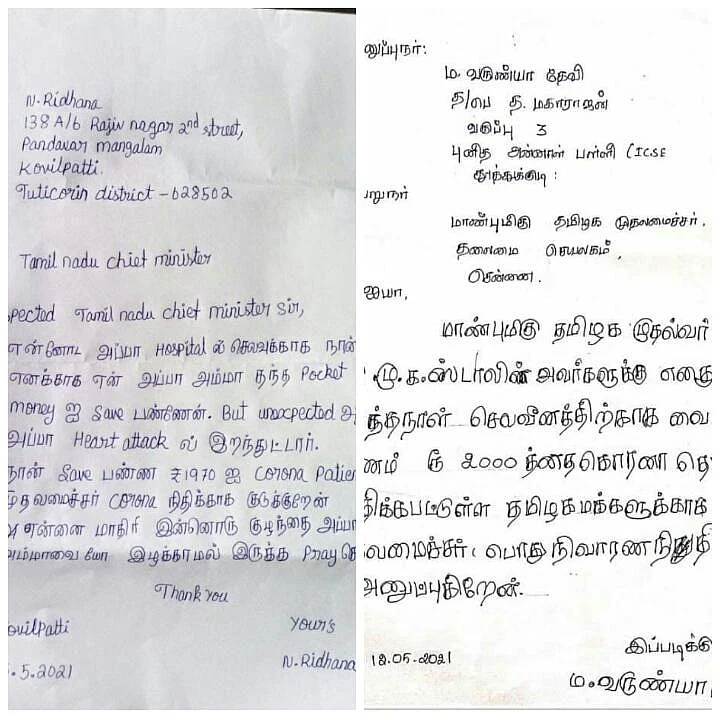 N. Ridhana
138 A/6 Rajiv nagar 2nd street,
Pandavar mangalam
Kovilpatti.
Tuticorin district - 628502
Tamil nadu chief minister
pected Tamil nadu chief minister Sir,
என்னோட அப்பா Hospital ல் செலவுக்காக நான்
எனக்காக என் அப்பா அம்மா தந்த Pocket
money ஐ Save பண்ணேன். But unexpected அ
அப்பா Heart attack ல் இறந்துட்டார்.
நான் Save பண்ண ₹1970 ஐ Corona Patien
தலமைச்சர் Corona நிதிக்காக குடுக்குறேன்
என்னை மாதிரி இன்னொரு குழந்தை அப்பா
அம்மாவை யோ இழக்காமல் இருக்க Pray செ
Thank you
ovilpatti
Your's
.5.2021
N. Ridhana
னுப்புநர்:
ம. வருண்யா தேவி
த/பெ த. மகாராஜன்
வகுப்பு 3
புனித அன்னாள் பள்ளி (ICSE
தூத்துக்குடி:
பறுநர்
மாண்புமிகு தமிழக முதலமைச்சர்.
தலைமை செயலகம்.
சென்னை.
ஐயா,
மாண்புமிகு தமிழக முதல்வர்
மு.க.ஸ்டாலின் அவர்களுக்கு எனது
த்தநாள் செலவீனத்திற்காக வை
ணம் ரூ 2000 த்னதகொரனா தொ
திக்கபட்டுள்ள தமிழகமக்களுக்காக
லமைச்சர் பொது நிவாரண நிதி
அனுப்புகிறேன்.
இப்படிக்கு
12.05.2021
ம. வருண்யா